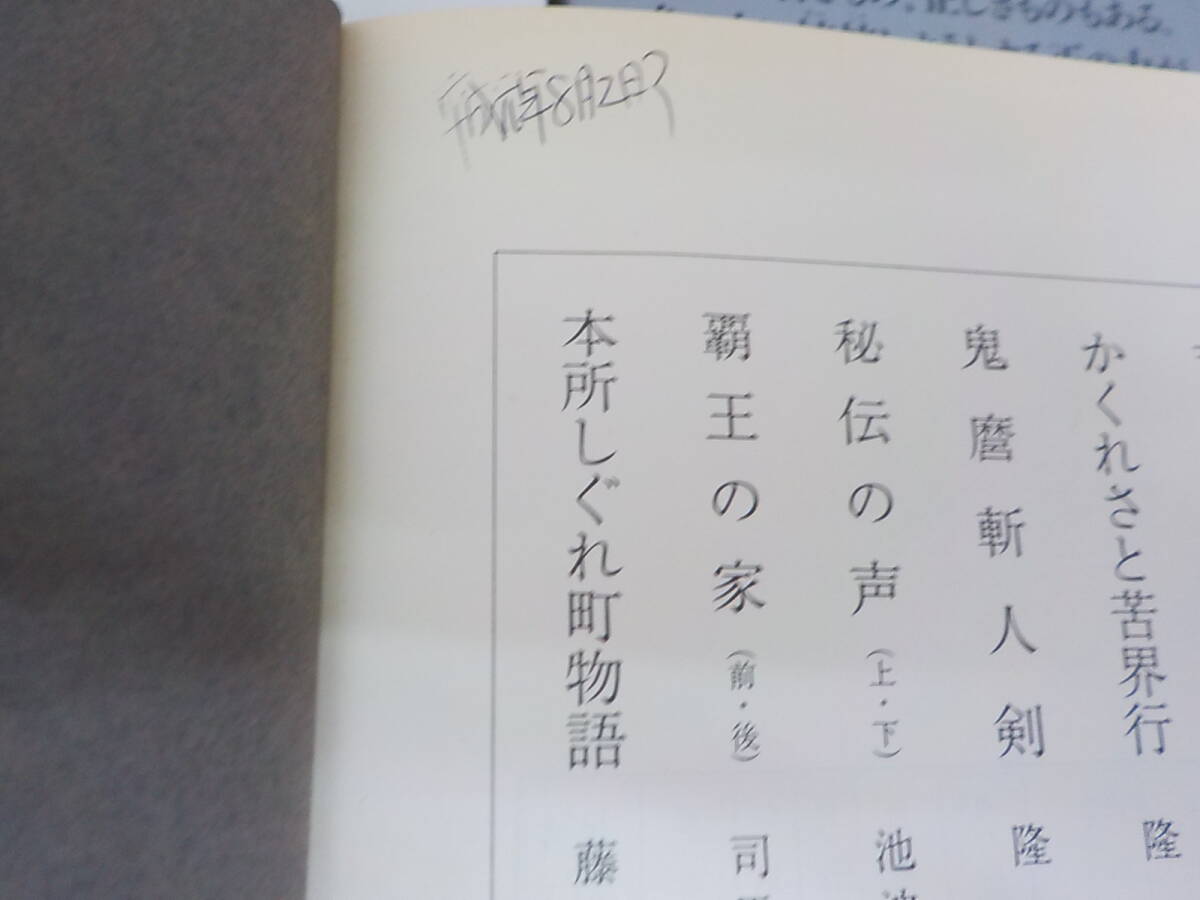 正しきものもある。
平成元年8月2日
かくれさと苦界行 隆
鬼麿斬人剣 隆
秘伝の声（上・下） 池
覇王の家（前・後） 司
本所しぐれ町物語 藤